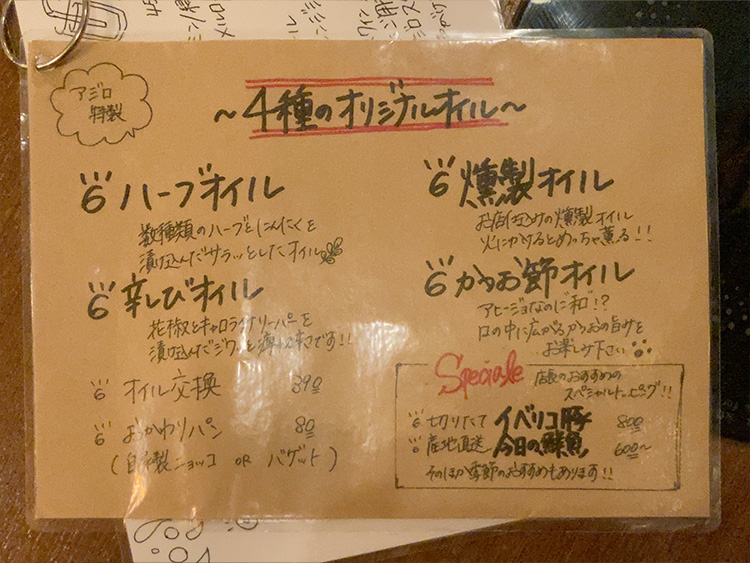 アジロ
特製
〜4種のオリジナルオイル〜
ハーブオイル
数種類のハーブとにんにくを
漬け込んだサラッとしたオイル
辛しびオイル
花椒とキャロライナリーパーを
漬け込んだジワッと痺れる辛さです!!
オイル交換 390
おかわりパン 80
(自家製ニョッコ OR バゲット)
燻製オイル
お店仕込みの燻製オイル
火にかけるとめっちゃ薫る!!
かつお節オイル
アヒージョなのに"和"!?
口の中に広がるかつおの旨みを
お楽しみ下さい
Speciale 店長のおすすめの
スペシャルトッピング!!
切りたて イベリコ豚 800
産地直送 今日の鮮魚 600〜
そのほか季節のおすすめもあります!!